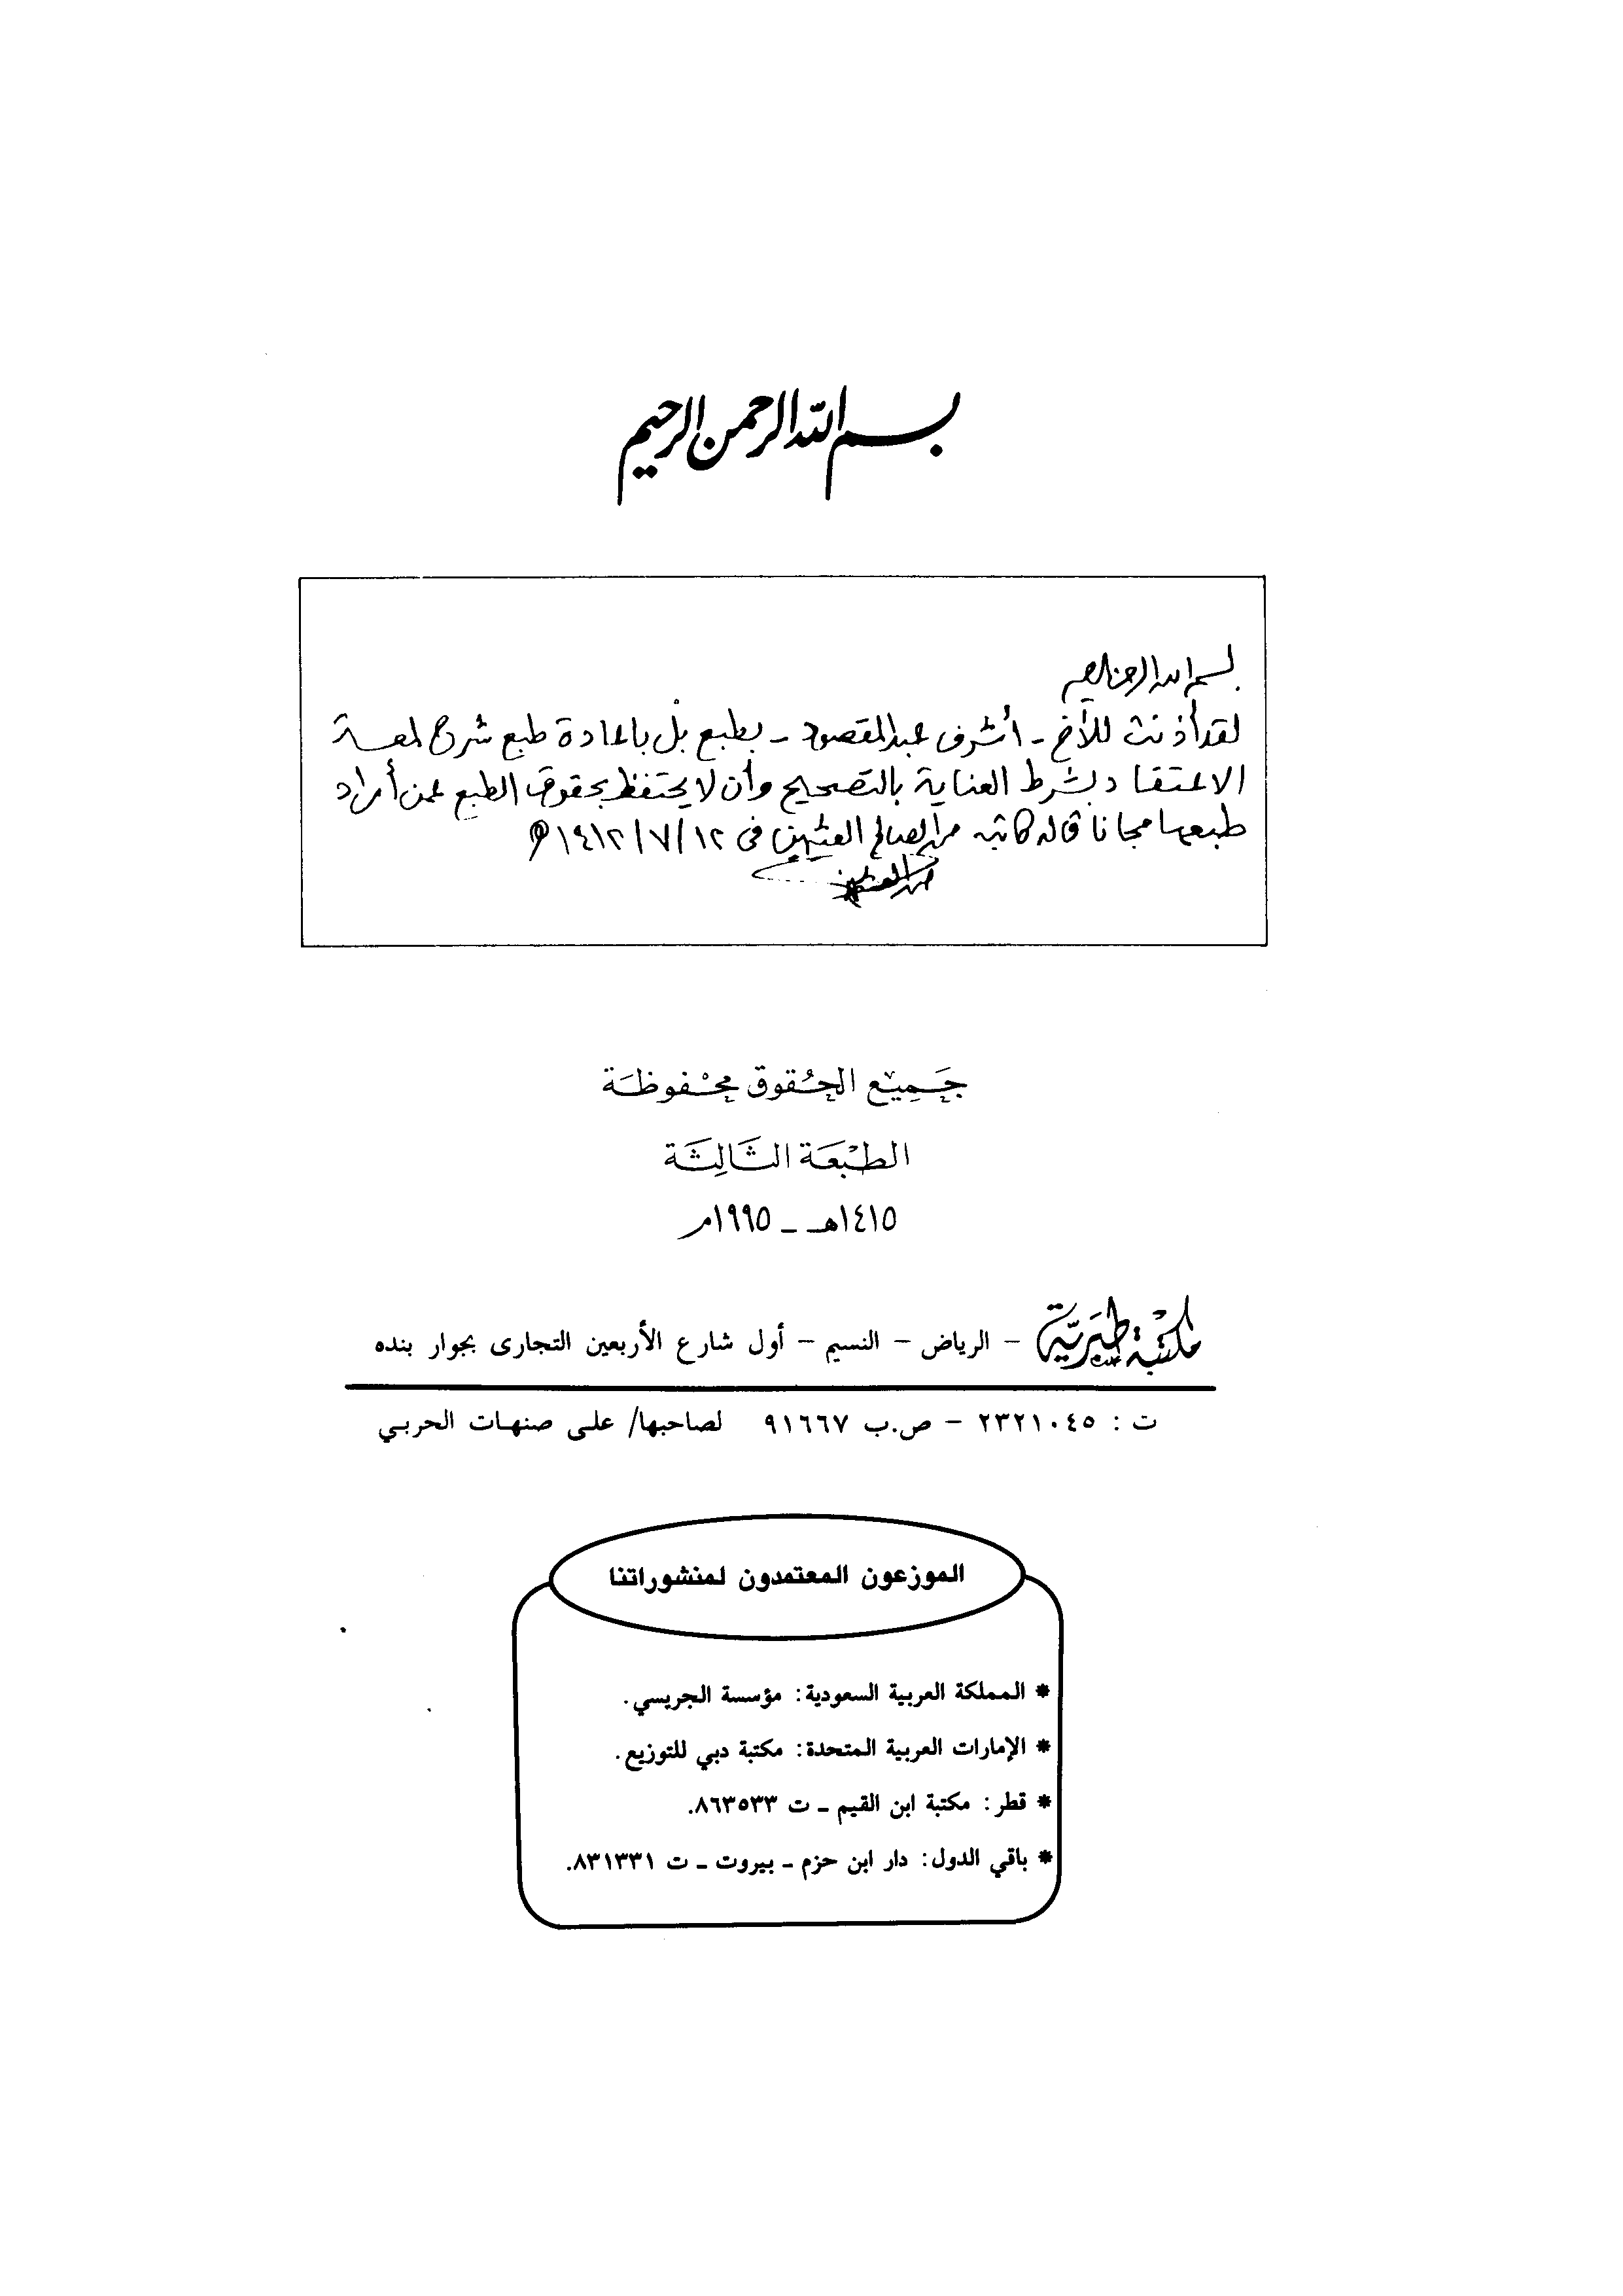 بسم الله الرحمن الرحيم
بسم الله الرحمن الرحيم
لقد أذنت للأخ - أشرف عبد المقصود - بطبع بل بإعادة طبع شرح لمعة
الاعتقاد بشرط العناية بالتصحيح وأن لا يحتفظ بحقوق الطبع عمن أراد
طبعها مجانا قاله كاتبه محمد الصالح العثيمين في ١٤١٢/٧/١٢ هـ
محمد العثيمين
جَمِيْع الحُقوق مَحْفوظَة
الطبْعَة الثَالِثَة
١٤١٥هـ - ١٩٩٥م
مكتبة طبرية - الرياض - النسيم - أول شارع الأربعين التجارى بجوار بنده
ت : ٢٣٢١٠٤٥ - ص.ب ٩١٦٦٧ لصاحبها/ على صنهات الحربي
الموزعون المعتمدون لمنشوراتنا
* المملكة العربية السعودية: مؤسسة الجريسي.
* الإمارات العربية المتحدة: مكتبة دبي للتوزيع.
* قطر: مكتبة ابن القيم - ت ٨٦٣٥٣٣.
* باقي الدول: دار ابن حزم - بيروت - ت ٨٣١٣٣١.